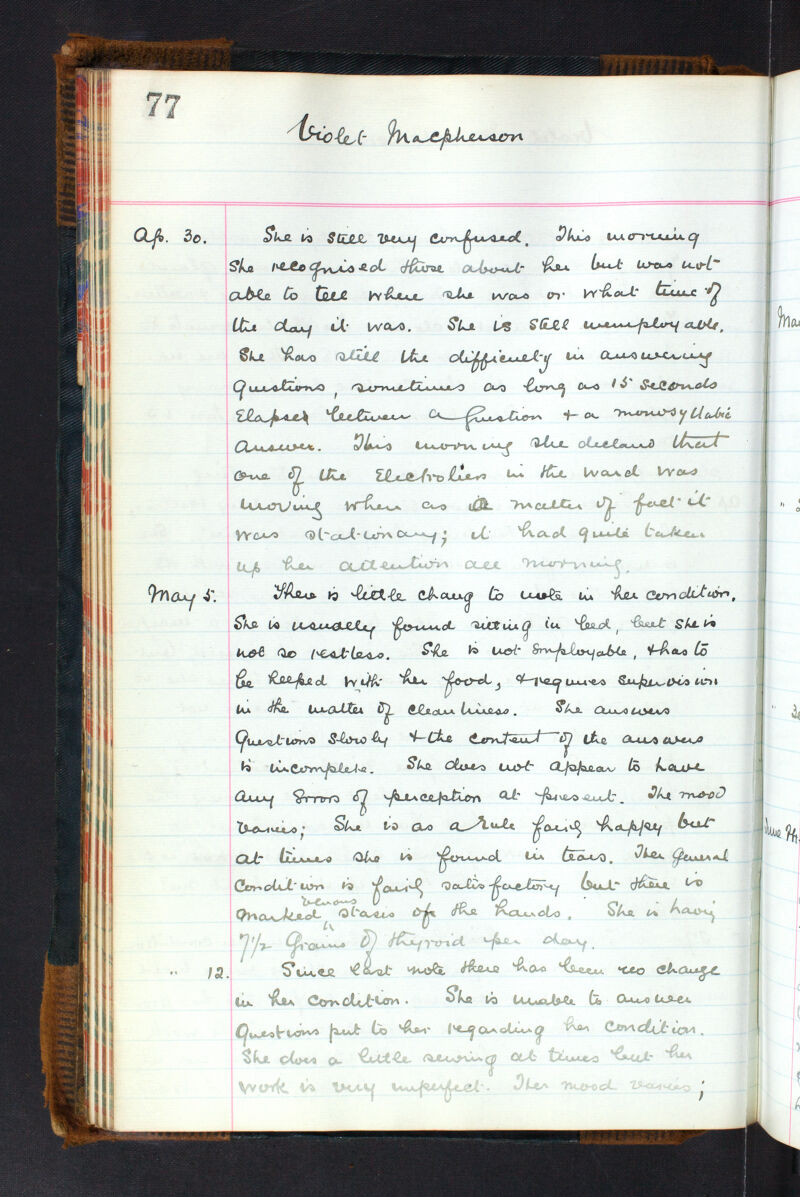 77
Violet Macpherson
Ap. 30. She is still very confused. This morning
she recognised those about her but was not
able to tell where she was or what time of
the day it was. She is still unemployable.
She has still the difficulty in answering
Questions, sometimes as long as 15 seconds
Elapses between a Question & a monosyllabic
answer. This morning she declares that
one of the Electroliers in the ward was
moving when as a matter of fact it
was stationary; it had quite taken
up her attention all morning.
May 5. There is little chang to note in her condition.
She is usually found sitting in bed, but she is
not so restless. She is not employable, & has to
be helped with her food, & requires supervision
in the matter of cleanliness. She answers
Questions slowly & the content of the answers
is incomplete. She does not appear to have
any Errors of perception at present. The mood
varies; She is as a rule fairly happy but
at times she is found in tears. Her General
Condition is fairly satisfactory but there is
marked venous stasis of the hands. She is having
7½ Grains of thyroid per day.
" 12. Since last note there has been no change
in her condition. She is unable to answer
Questions put to her regarding her condition.
She does a little sewing at times but her
work is very imperfect. Her mood varies;
May
"
"
June 7th.